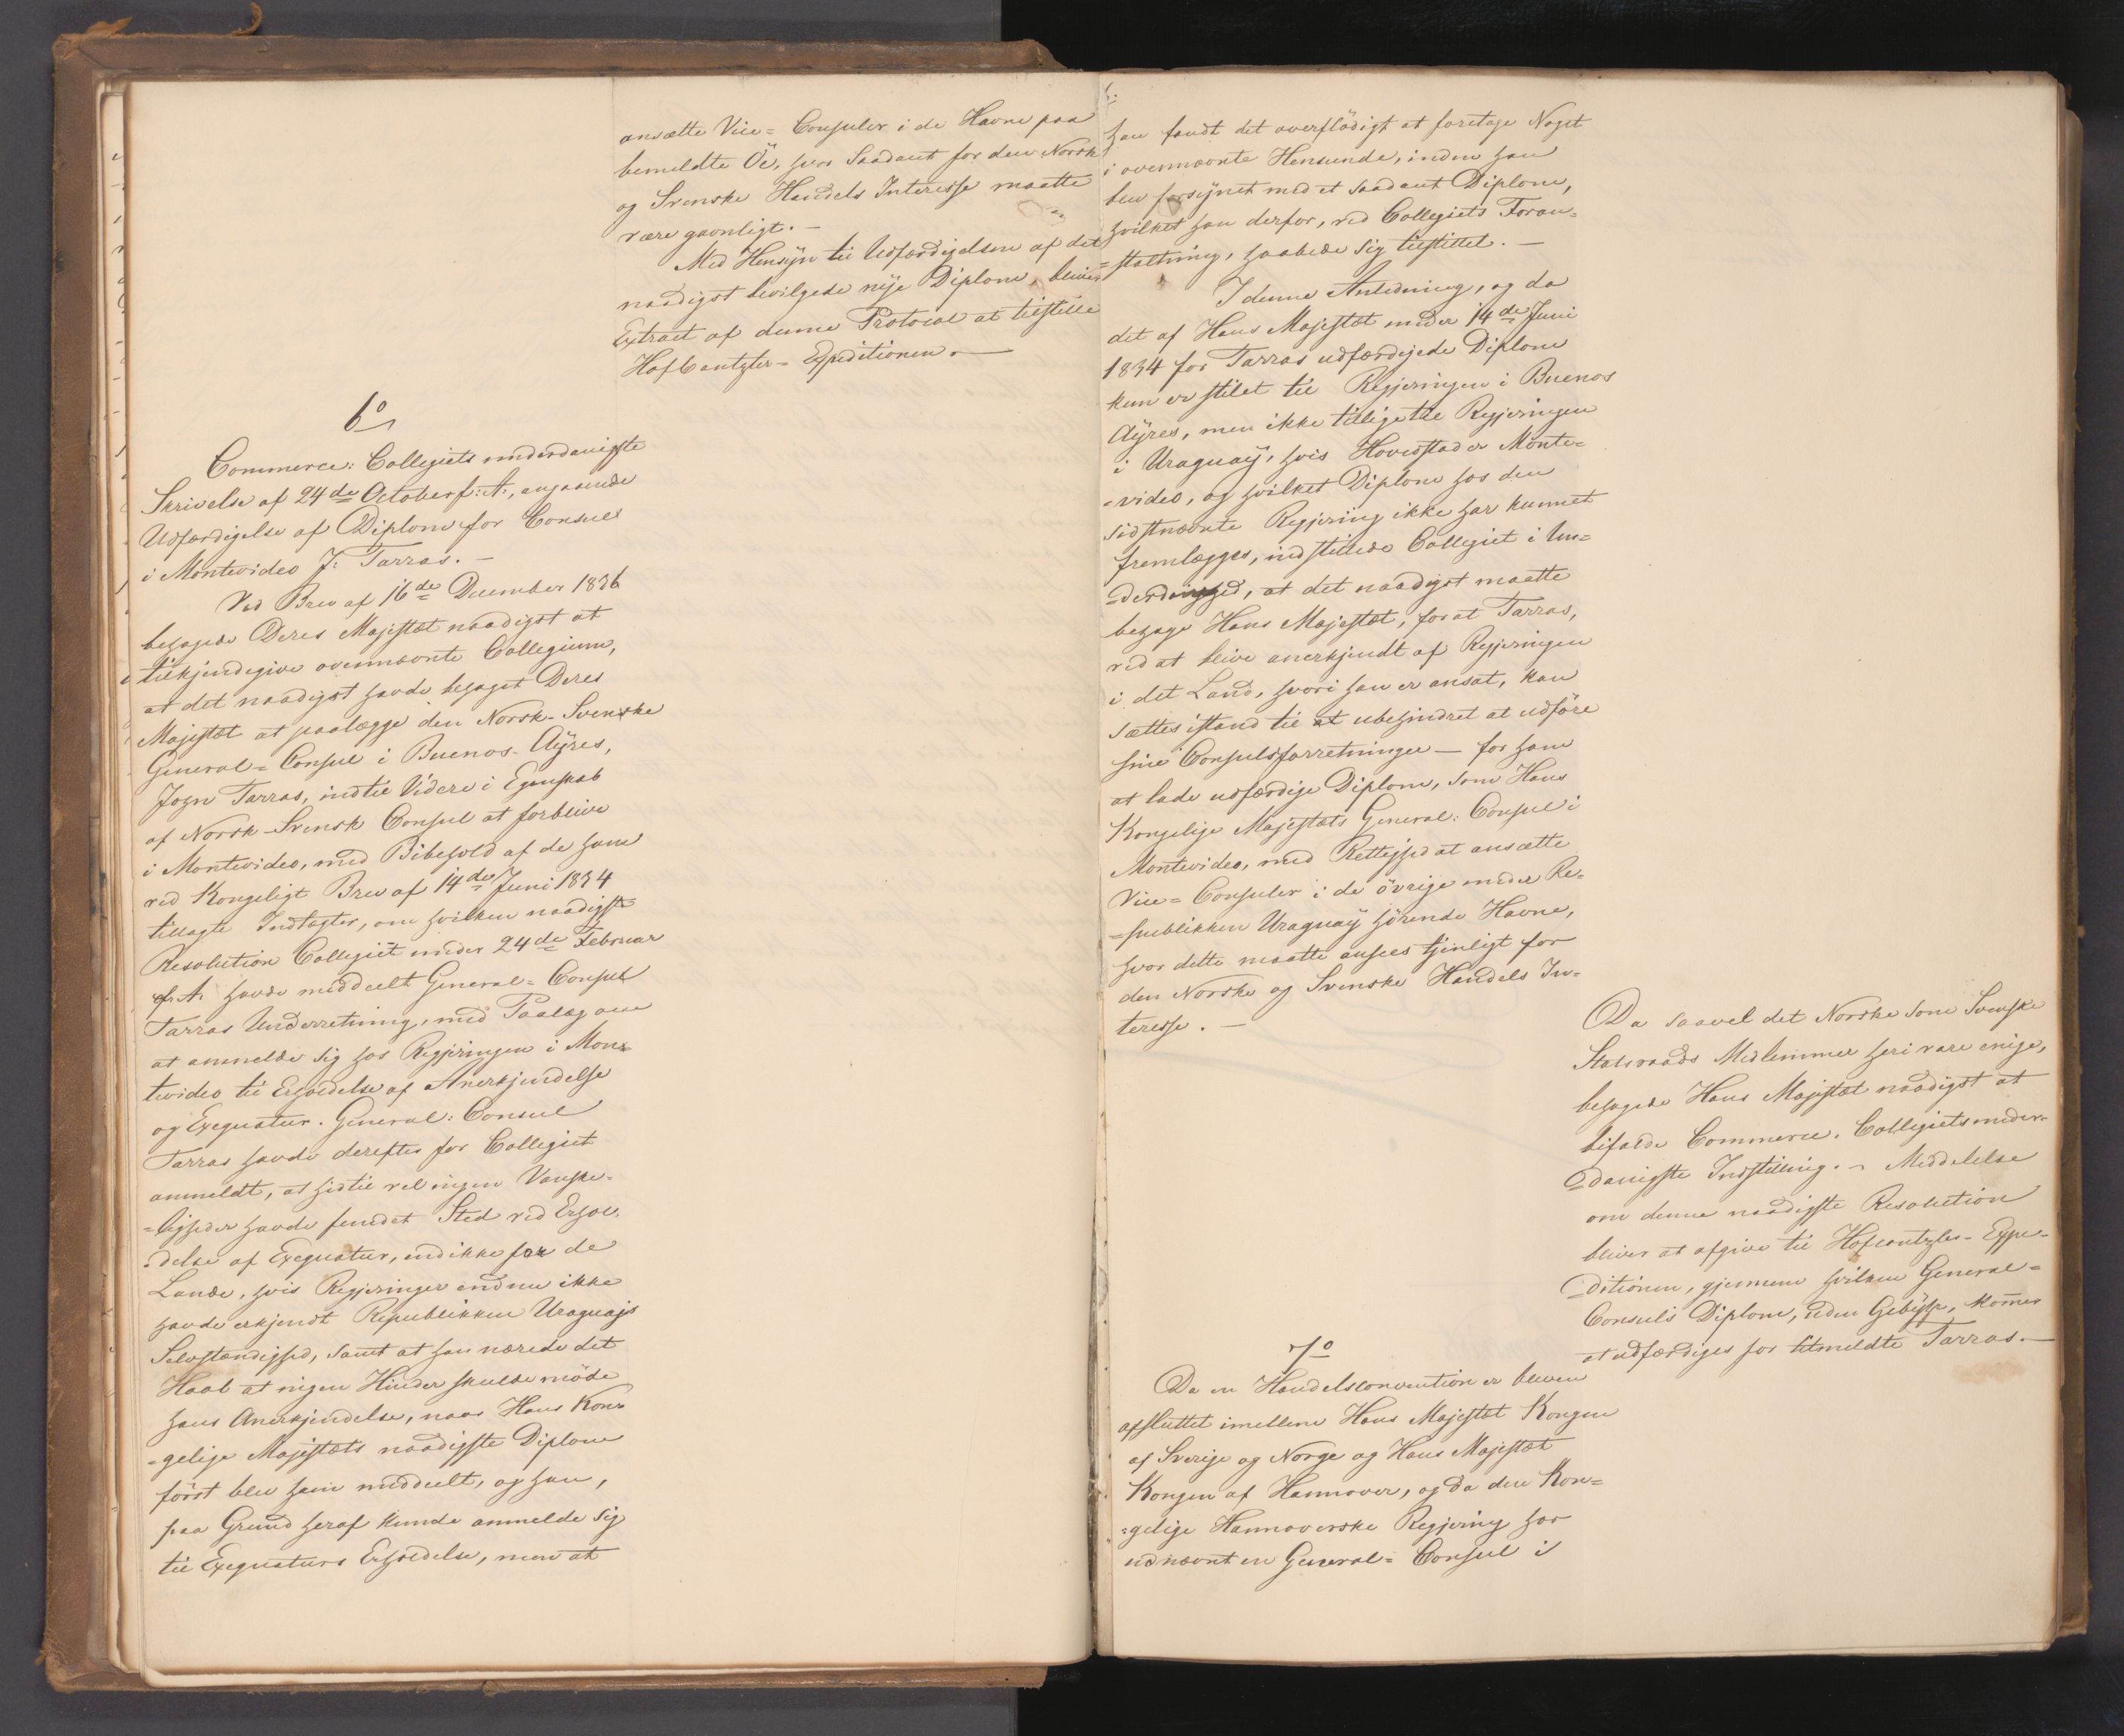 ansætte Vice= Consuler i de Havne paa
bemeldte Öe, hvor Saadant for den Norsk
og Svenske Handels Interesse maatte
være gavnligt. —
Med Hensÿn til Udfærdigelsen af det
naadigst bevilgede nÿe Diplom, bliver
Extract af denne Protocol at tilstille
HofCantzler= Expeditionen. —
6o
Commerce: Collegiets underdanigste
Skrivelse af 24de October f: A:, angaaende
Udfærdigelse af Diplom for Consul
i Montevideo J: Tarras. —
Ved Brev af 16de December 1836
behagede Deres Majestæt naadigst at
tilkjendegive ovennævnte Collegium,
at det naadigst havde behaget Deres
Majestæt at paalægge den Norsk-Svenske
General= Consul i Buenos-Aÿres,
John Tarras, indtil Videre i Egenskab
af Norsk-Svensk Consul at forblive
i Montevideo, med Bibehold af de ham
ved Kongeligt Brev af 14de Juni 1834
tillagte Indtægter, om hvilken naadigste
Resolution Collegiet under 24de Februar
f. A. havde meddeelt General= Consul
Tarras Underretning, med Paalæg om
at anmelde sig hos Regjeringen i Mon=
tevideo til Erholdelse af Anerkjendelse
og Exequatur. General: Consul
Tarras havde derefter for Collegiet
anmeldt, at hidtil vel ingen Vanske=
=ligheder havde fundet Sted ved Erhol=
=delse af Exequatur, end ikke for de
Lande, hvis Regjeringer endnu ikke
havde erkjendt Republikken Uraguajs
Selvstændighed, samt at han nærede det
Haab at ingen Hinder skulde möde
hans Anerkjendelse, naar Hans Kon=
=gelige Majestæts naadigste Diplom
först blev ham meddeelt, og han,
paa Grund heraf kunde anmelde sig
til Exequaturs Erholdelse, men at
han fandt det overflödigt at foretage Noget
i ovennævnte Henseende, inden han
blev forsÿnet med et saadant Diplom,
hvilket han derfor, ved Collegiets Foran=
=staltning, haabede sig tilstillet. —
I denne Anledning, og da
det af Hans Majestæt under 14de Juni
1834 for Tarras udfærdigede Diplom
kun er stilet til Regjeringen i Buenos
Aÿres, men ikke tillige til Regjeringen
i Uraguaÿ, hvis Hovedstad er Monte=
=video, og hvilket Diplom hos den
sidstnævnte Regjering ikke har kunnet
fremlægges, indstillede Collegiet i Un=
=derdanighed, at det naadigst maatte
behage Hans Majestæt, for at Tarras,
ved at blive anerkjendt af Regjeringen
i det Land, hvori han er ansat, kan
sættes istand til at ubehindret at udföre
sine Consulsforretninger — for ham
at lade udfærdige Diplom, som Hans
Kongelige Majestæts General: Consul i
Montevideo, med Rettighed at ansætte
Vice= Consuler i de övrige under Re=
=publikken Uraguaÿ hörende Havne,
hvor dette maatte ansees tjenligt for
den Norske og Svenske Handels In=
teresse. —
Da saavel det Norske som Svenske
Statsraads Medlemmer heri vare enige,
behagede Hans Majestæt naadigst at
bifalde Commerce. Collegiets under=
=danigste Indstilling. — Meddelelse
om denne naadigste Resolution
bliver at afgive til Hofcantzler-Expe=
=ditionen, gjennem hvilken General=
Consuls Diplom, uden Gebÿhr, kom̄er
at udfærdiges for bemeldte Tarras. —
7o
Da en Handelsconvention er bleven
afsluttet imellem Hans Majestæt Kongen
af Sverige og Norge og Hans Majestæt
Kongen af Hannover, og da den Kon=
=gelige Hannoverske Regjering har
udnævnt en General= Consul i